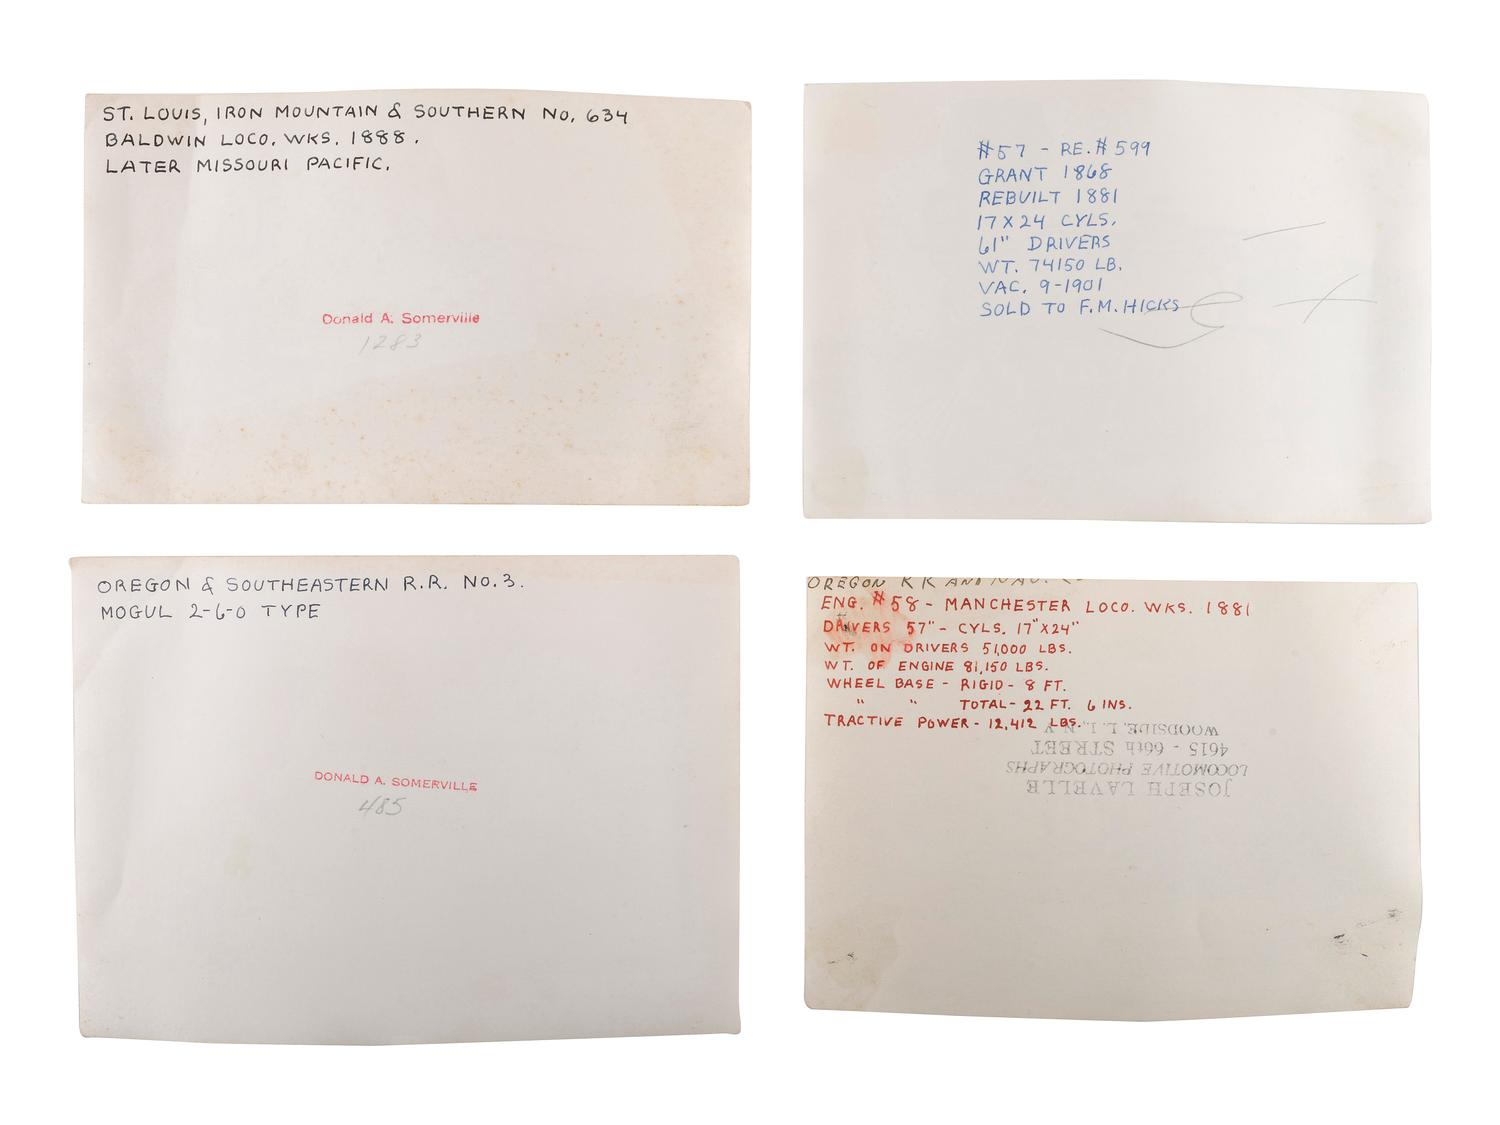 ST. LOUIS, IRON MOUNTAIN & SOUTHERN NO. 634
BALDWIN LOCO. WKS. 1888.
LATER MISSOURI PACIFIC.
Donald A. Somerville
1283
#57 - RE. # 599
GRANT 1868
REBUILT 1881
17 X 24 CYLS.
61" DRIVERS
WT. 74150 LB.
VAC. 9-1901
SOLD TO F.M. HICKS
OREGON & SOUTHEASTERN R.R. NO. 3.
MOGUL 2-6-0 TYPE
DONALD A. SOMERVILLE
485
OREGON R R AND NAV.
ENG. #58 - MANCHESTER LOCO. WKS. 1881
DRIVERS 57" - CYLS. 17"X24"
WT. ON DRIVERS 51,000 LBS.
WT. OF ENGINE 81,150 LBS.
WHEEL BASE - RIGID - 8 FT.
" " TOTAL - 22 FT. 6 INS.
TRACTIVE POWER - 12,412 LBS.
JOSEPH LAVELLE
LOCOMOTIVE PHOTOGRAPHS
4615 - 66th STREET
WOODSIDE, L. I., N. Y.